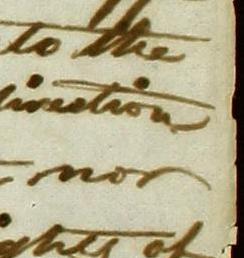 to the
direction
nor
ights of